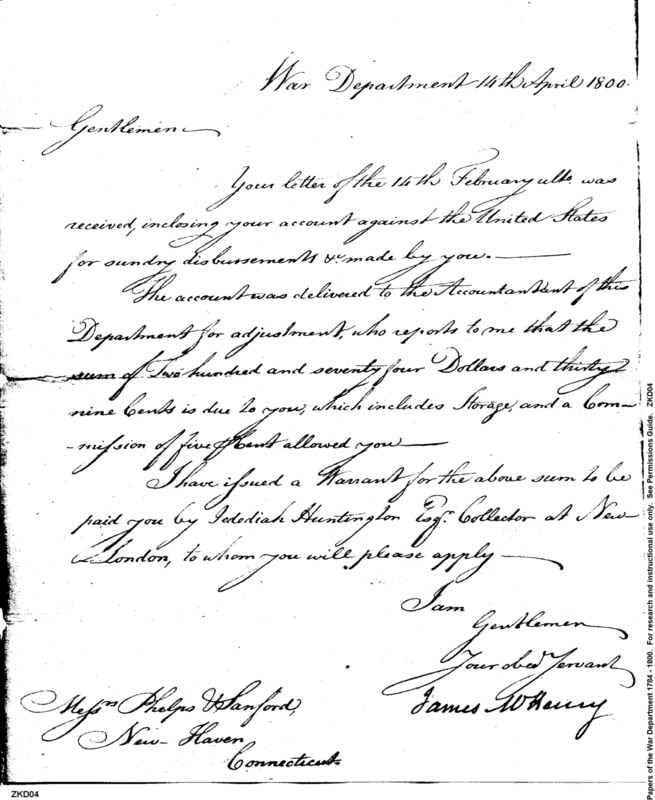 War Department 14th April 1800.
Gentlemen
Your letter of the 14th February ulto. was
received, inclosing your account against the United States
for sundry disbursements &c. made by you.
The account was delivered to the Accountant of this
Department for adjustment, who reports to me that the
sum of Two hundred and seventy four Dollars and thirty
nine Cents is due to you, which includes Storage, and a Com-
-mission of five ⅌ Cent allowed you
I have issued a Warrant for the above sum to be
paid you by Jedediah Huntington Esqr. Collector at New
London, to whom you will please apply
I am
Gentlemen
Your obed. Servant
James McHenry
Messrs. Phelps & Sanford,
New-Haven
Connecticut
ZKD04
Papers of the War Department 1784 - 1800. For research and instructional use only. See Permissions Guide. ZKD04